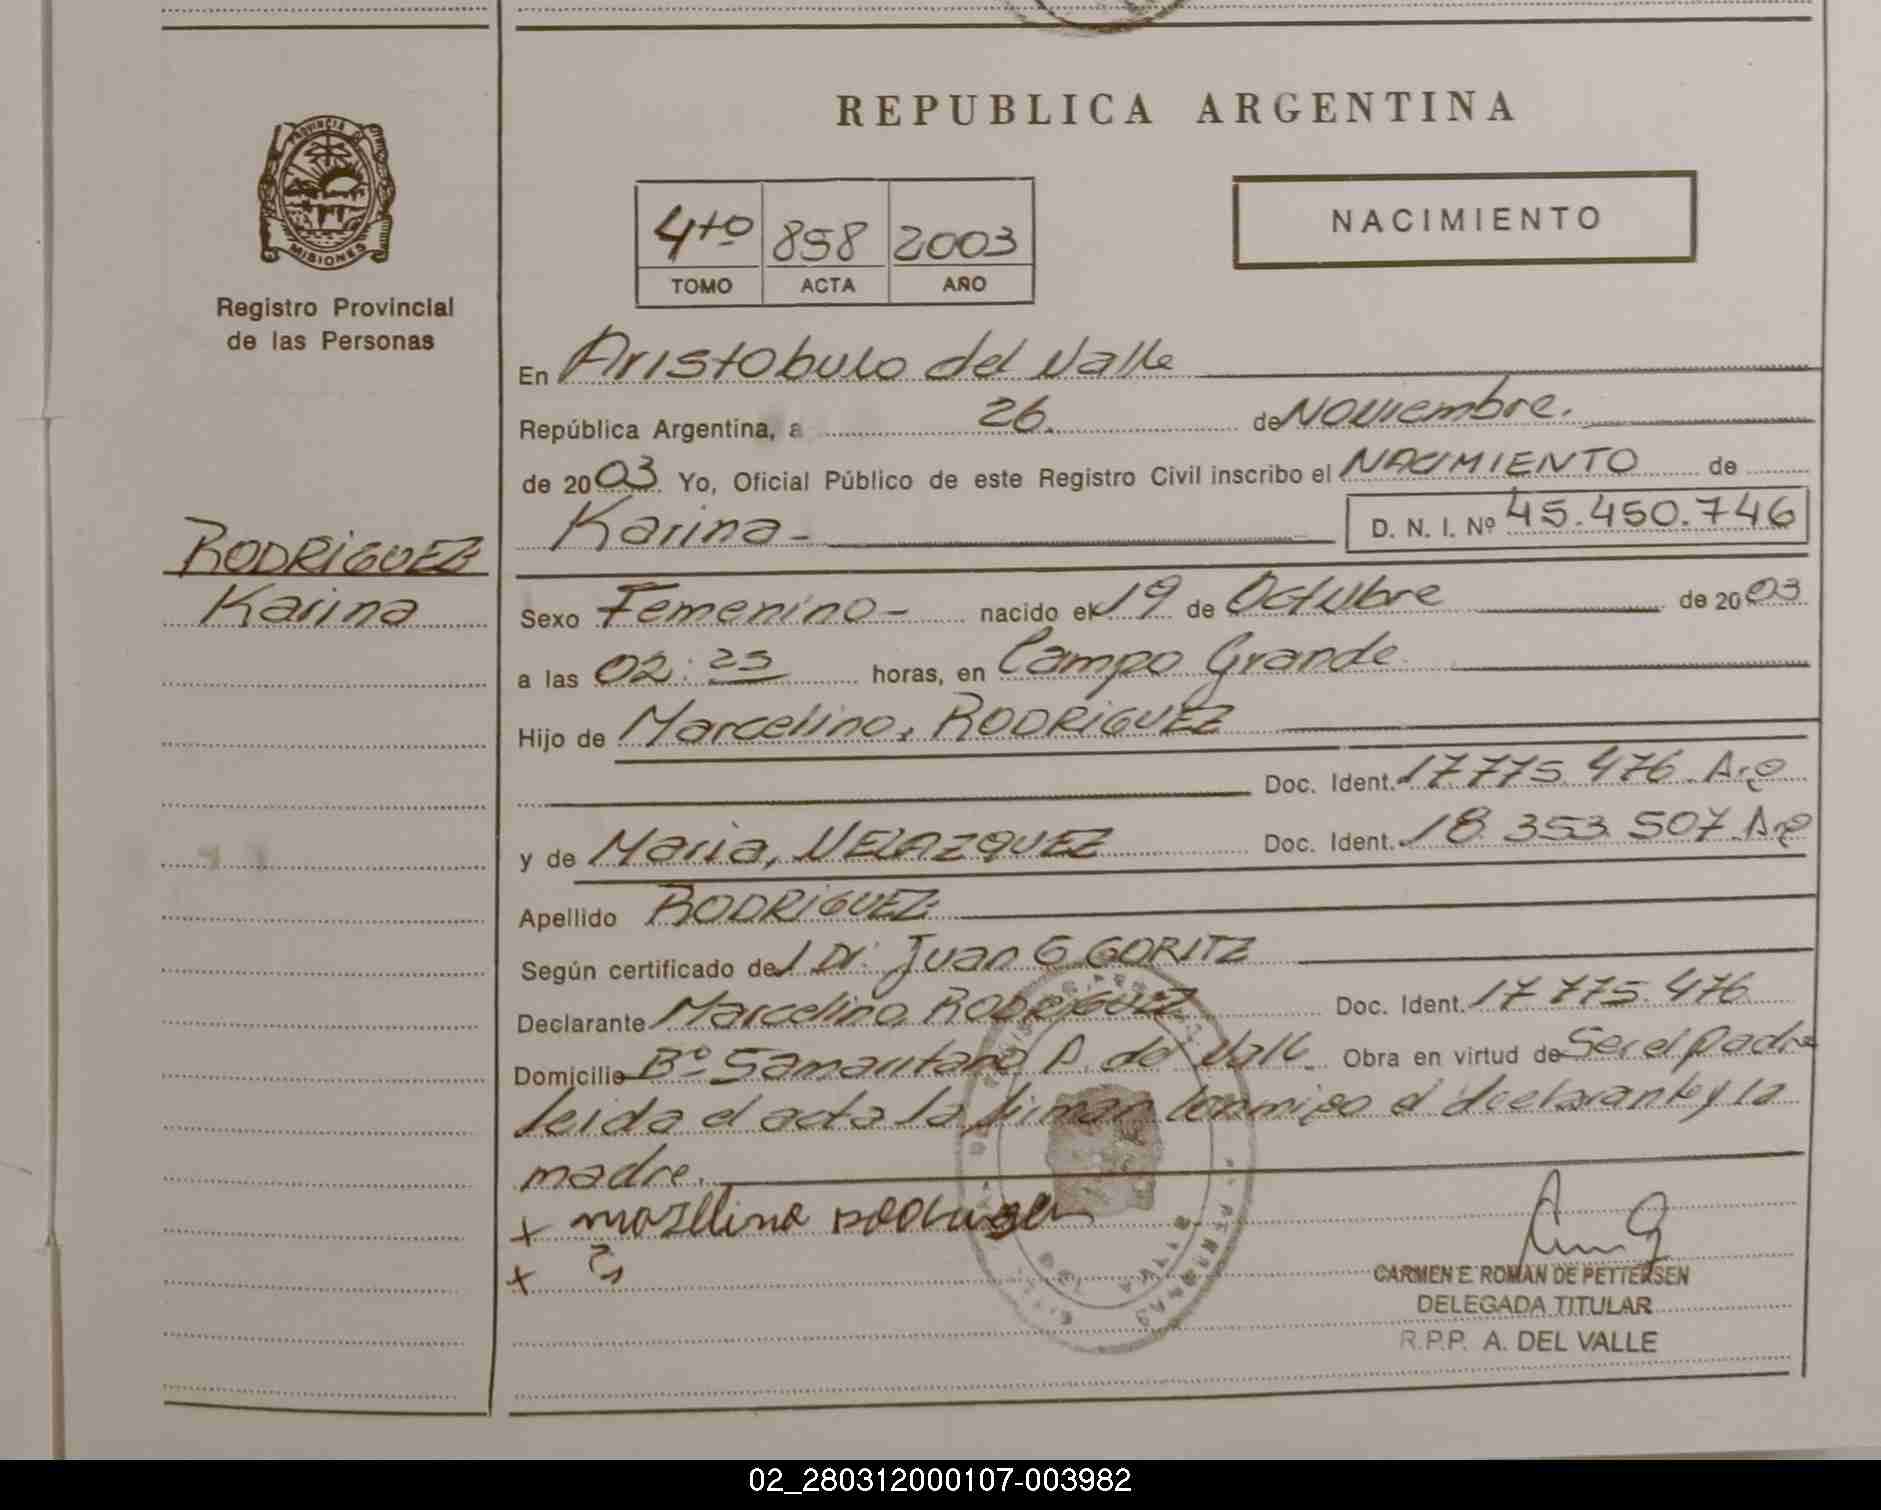 REPUBLICA ARGENTINA
PROVINCIA DE
MISIONES
Registro Provincial
de las Personas
4to 858 2003
TOMO ACTA AÑO
NACIMIENTO
En Aristobulo del Valle
República Argentina, a 26. de Noviembre.
de 2003 Yo, Oficial Público de este Registro Civil inscribo el NACIMIENTO de
Karina- D. N. I. Nº 45.450.746
RODRIGUEZ
Karina
Sexo Femenino- nacido el 19 de Octubre de 2003
a las 02:25 horas, en Campo Grande
Hijo de Marcelino, RODRIGUEZ
Doc. Ident. 17.775.476 Arg
y de Maria, VELAZQUEZ Doc. Ident. 18.353.507 Arg
Apellido RODRIGUEZ
Según certificado del Dr. Juan G GORITZ
Declarante Marcelino RODRIGUEZ Doc. Ident. 17.775.476
Domicilio Bº Samaritano A. del Valle Obra en virtud de Ser el padre
leida el acta la firman conmigo el declarante y la
madre.
x
x
CARMEN E. ROMAN DE PETTERSEN
DELEGADA TITULAR
R.P.P. A. DEL VALLE
02_280312000107-003982